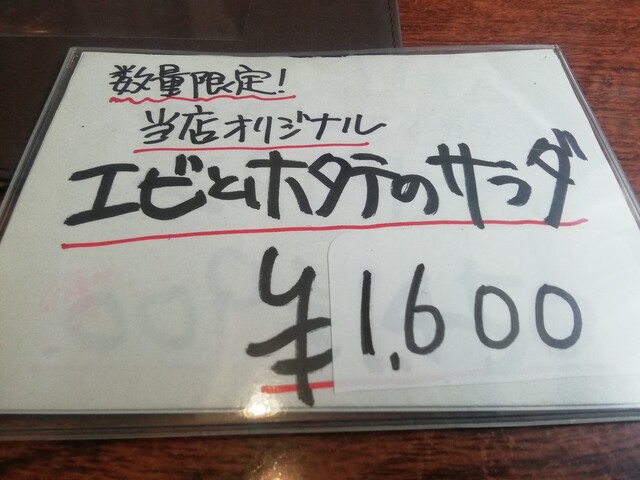 数量限定!
当店オリジナル
エビとホタテのサラダ
¥1,600